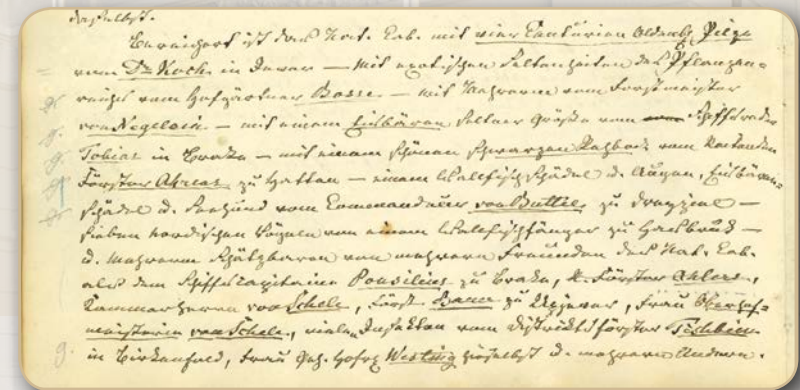 daselbst.
Bereichert ist das Nat. Cab. mit vier Centurien Oldenb. Pilze
vom Dr Koch in Jever — mit exotischen Seltenheiten des Pflanzen=
reichs vom Hofgärtner Bosse — mit Mehrerem vom Forstmeister
von Negelein — mit einem Eisbären seltner Größe vom Schiffsreeder
Tobias in Brake — mit einem schönen schwarzen Rehbock vom
Förster Ahlers zu Hatten — einem Wallfischschädel u. Augen, Eisbären=
schädel u. Seehund vom Commandeur von Buttel zu —
sieben nordischen Vögeln von einem Wallfischfänger zu —
u. mehrerem Schätzbaren von mehrern Freunden des Nat. Cab.
als dem Schiffscapitaine Pousilius zu Brake, H. Förster Ahlers,
Kammerherrn von Schele, Först. zu Upjever, Frau Oberhof=
meisterin von Schele, vielen Insekten vom Distriktsförster Tischbein
in Birkenfeld, Frau Geh. Hofr. hieselbst u. mehrern Andern.